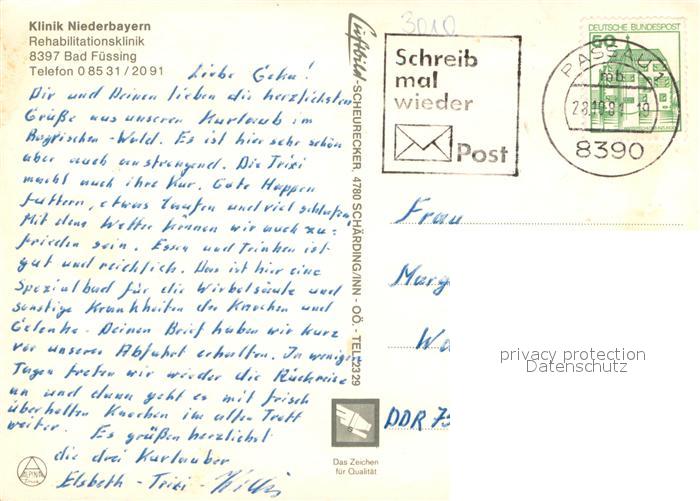 Klinik Niederbayern
Rehabilitationsklinik
8397 Bad Füssing
Telefon 0 85 31 / 20 91
Liebe
Dir und Deinen lieben die herzlichsten
Grüße aus unseren Kurlaub im
Bayrischen-Wald. Es ist hier sehr schön
aber auch anstrengend. Die Trixi
macht auch ihre Kur. Gute Happen
futtern, etwas laufen und viel schlafen.
Mit dem Wetter können wir auch zu-
frieden sein. Essen und Trinken ist
gut und reichlich. Das ist hier eine
Spezialbad für die Wirbelsäule und
sonstige Krankheiten der Knochen und
Gelenke. Deinen Brief haben wir kurz
vor unserer Abfahrt erhalten. In wenigen
Tagen treten wir wieder die Rückreise
an und dann geht es mit frisch
überholten Knochen im alten Trott
weiter. Es grüßen herzlichst
die drei Kurlauber
Elsbeth - Trixi - Willi
ALPINA
Luftbild-SCHEURECKER, 4780 SCHÄRDING/INN - OÖ. - TEL. 2329
Das Zeichen
für Qualität
3010
Schreib
mal
wieder
Post
DEUTSCHE BUNDESPOST
50
PASSAU 1
mb
8390
Frau
Marg
Wa
DDR 75
privacy protection
Datenschutz